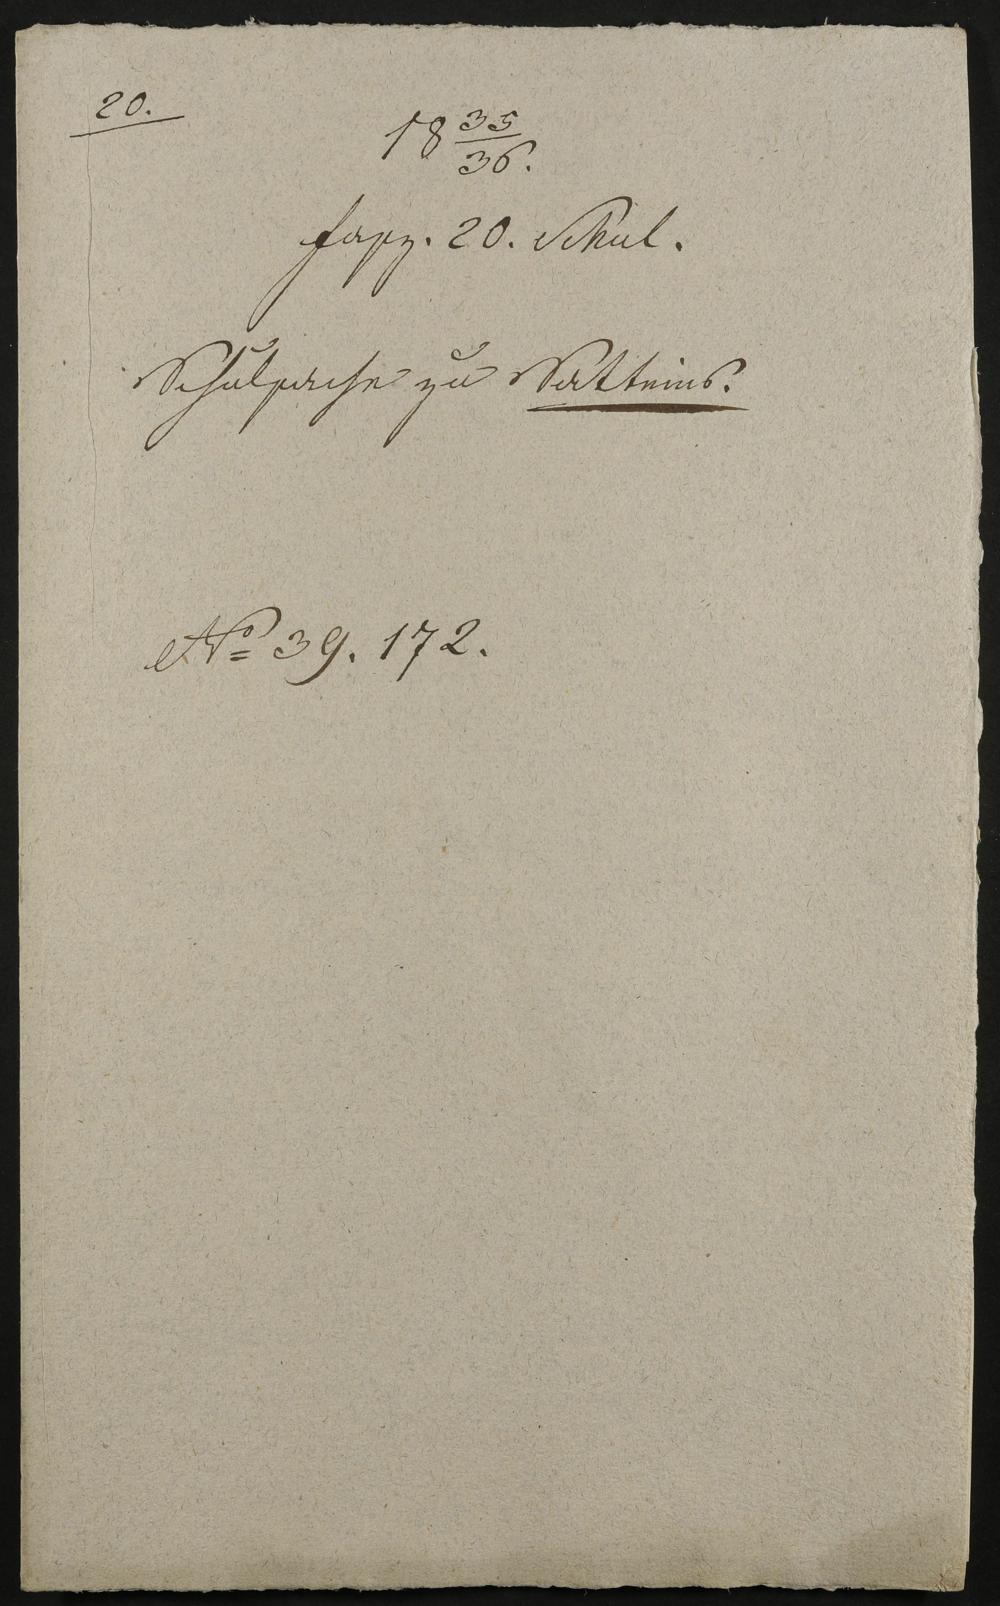 20.
18 35/36.
Fasz. 20. Schul.
Schulsache zu Satteins.
No 39. 172.